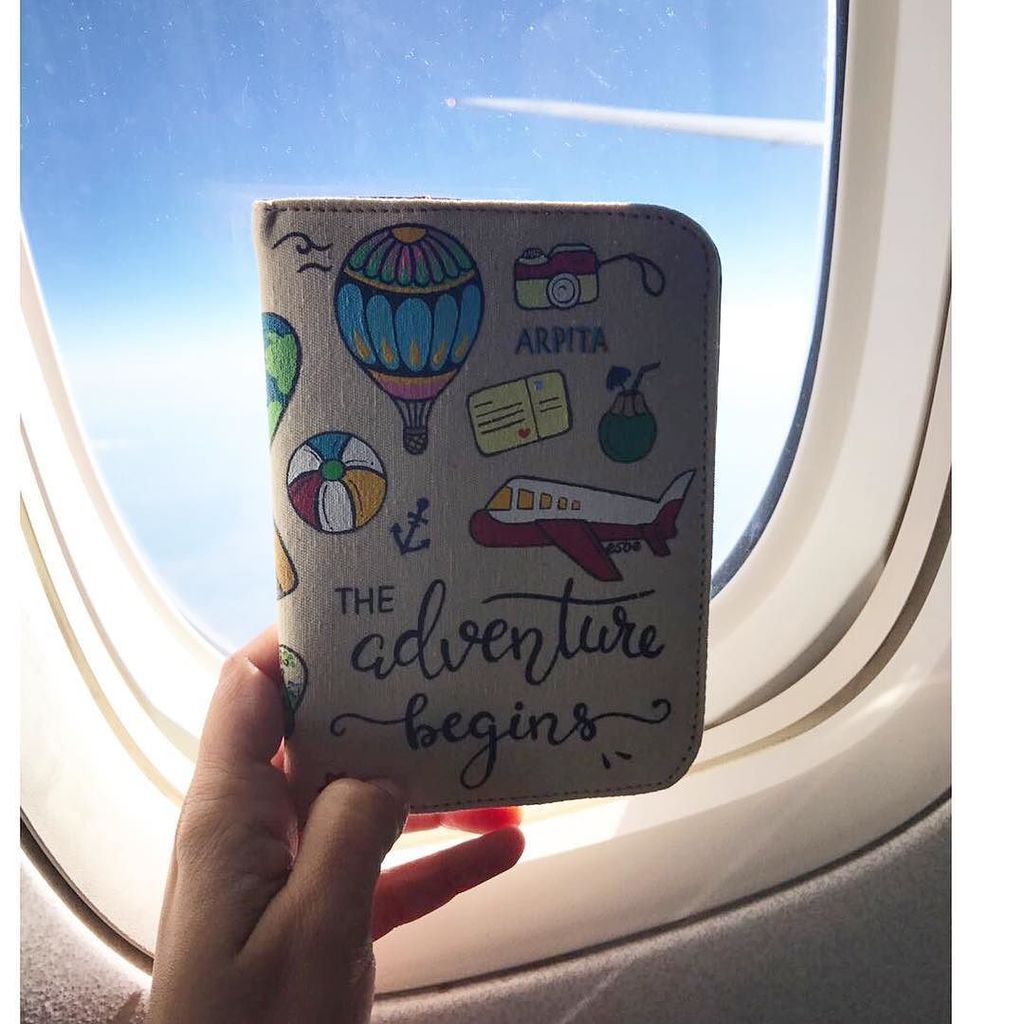 ARPITA
esoe
THE
adventure
begins